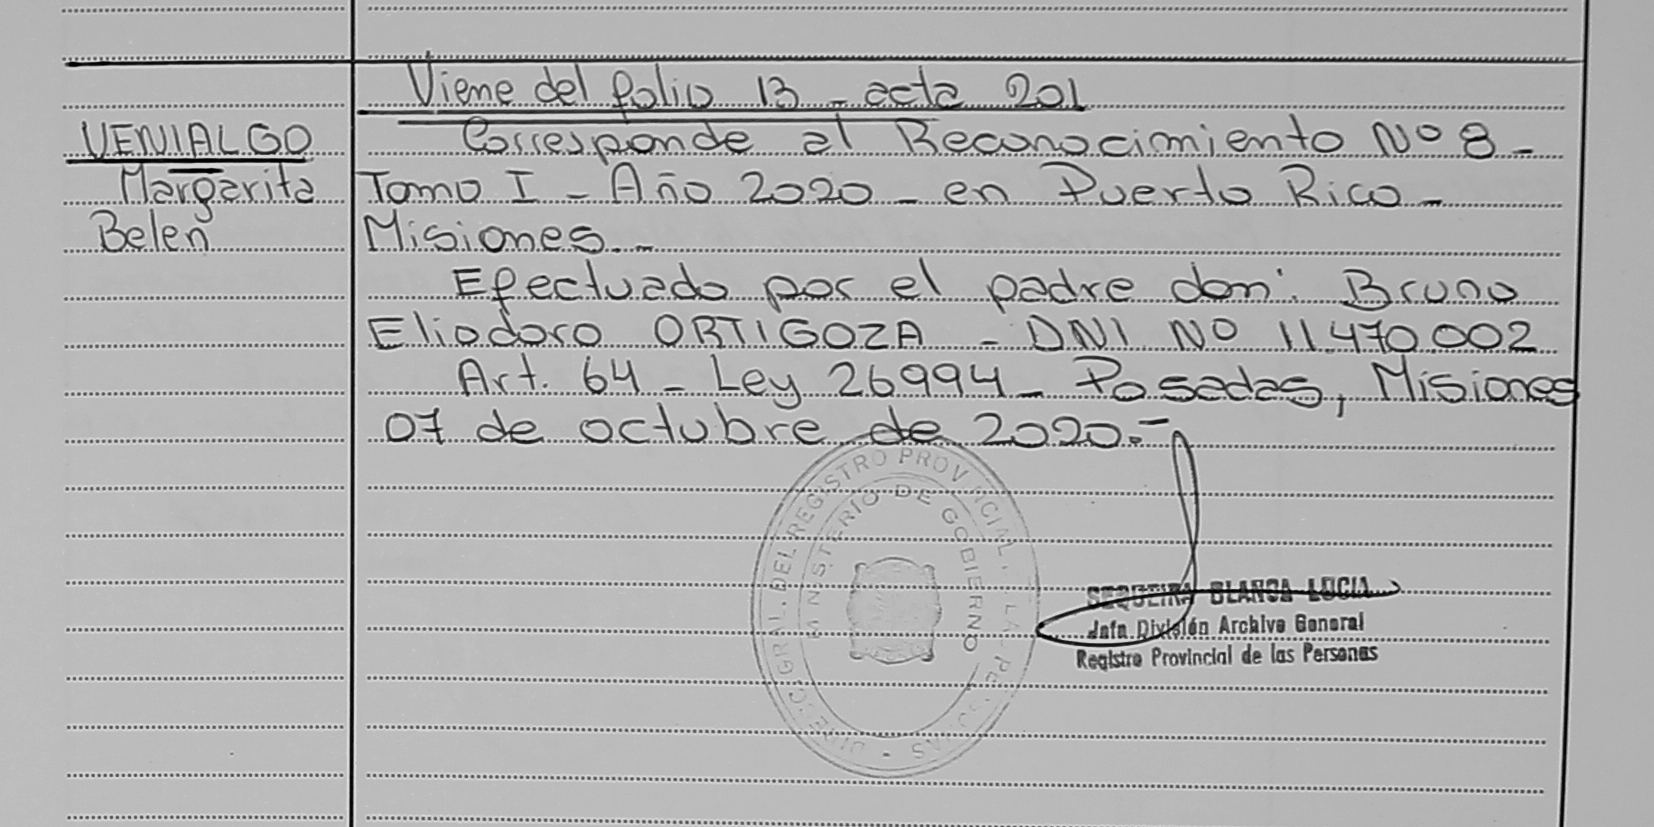 Viene del folio 13 - acta 201
VENIALGO
Margarita
Belen
Corresponde al Reconocimiento Nº 8 -
Tomo I - Año 2020 - en Puerto Rico -
Misiones. -
Efectuado por el padre don: Bruno
Eliodoro ORTIGOZA - DNI Nº 11.470.002
Art. 64 - Ley 26994 - Posadas, Misiones
07 de octubre de 2020.-
GRAL. DEL REGISTRO PROVINCIAL DE LAS PERSONAS
MINISTERIO DE GOBIERNO
SEQUEIRA BLANCA LUCIA
Jefa División Archivo General
Registro Provincial de las Personas